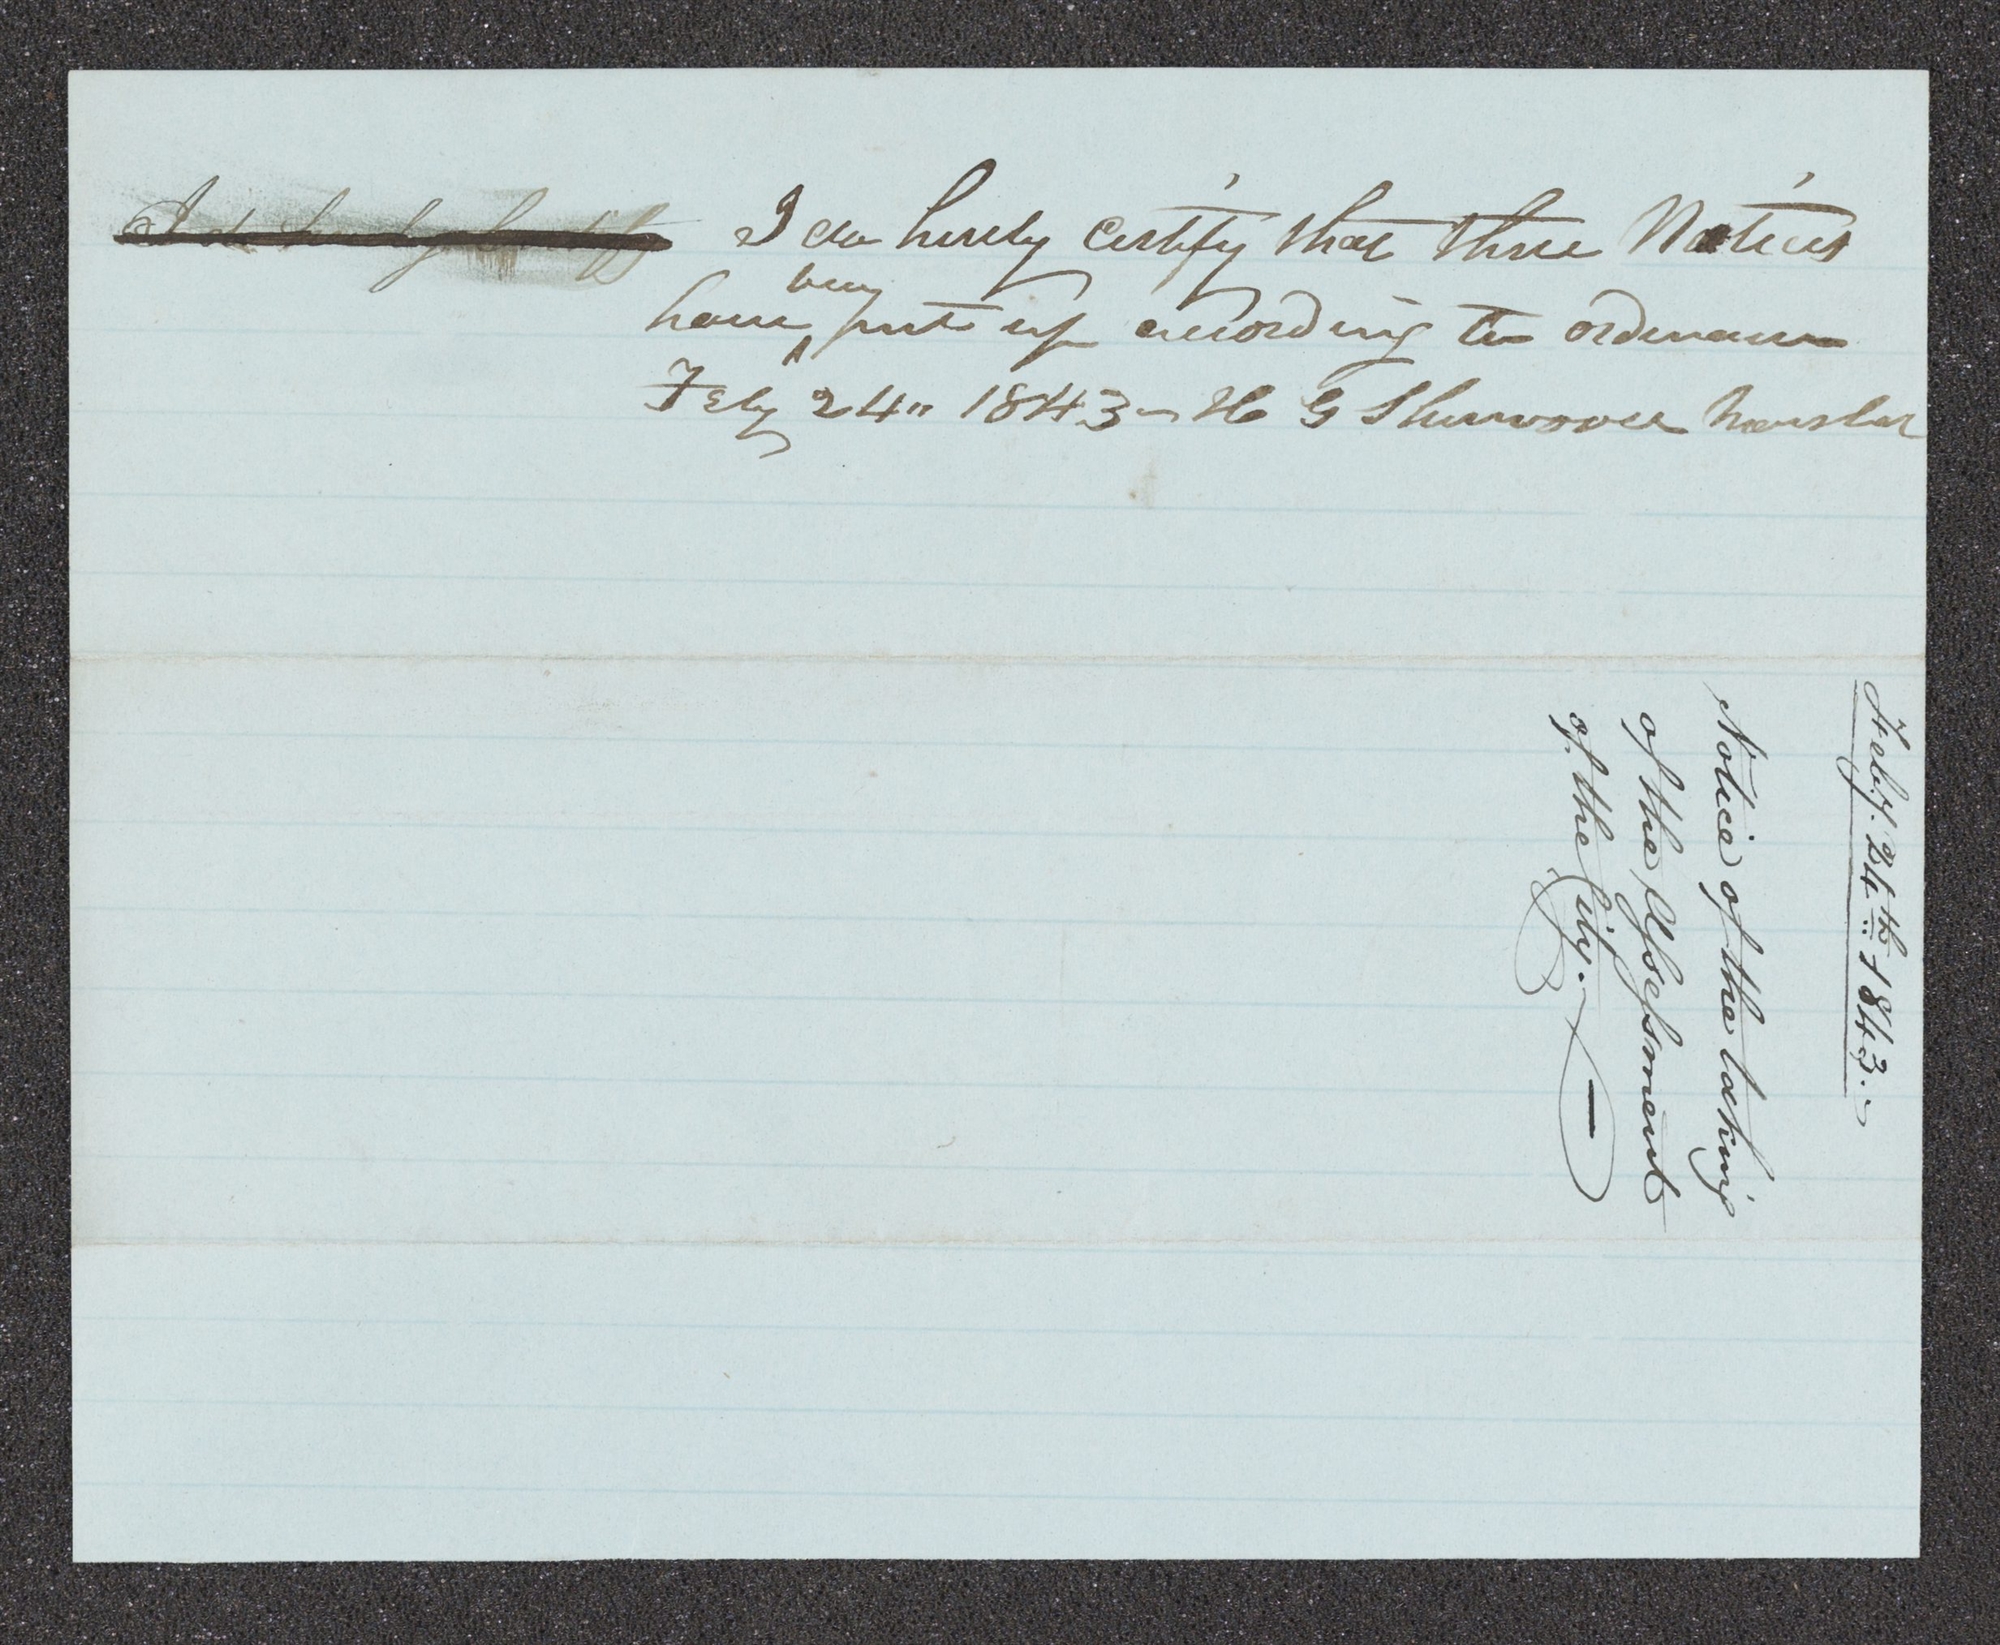 I do hereby certify I do hereby certify that three Notices
have been put up according to ordinance
Feby 24" 1843 H G Sherwood Marshal
Feby. 24th 1843.
Notice of the taking
of the Assessment
of the City.